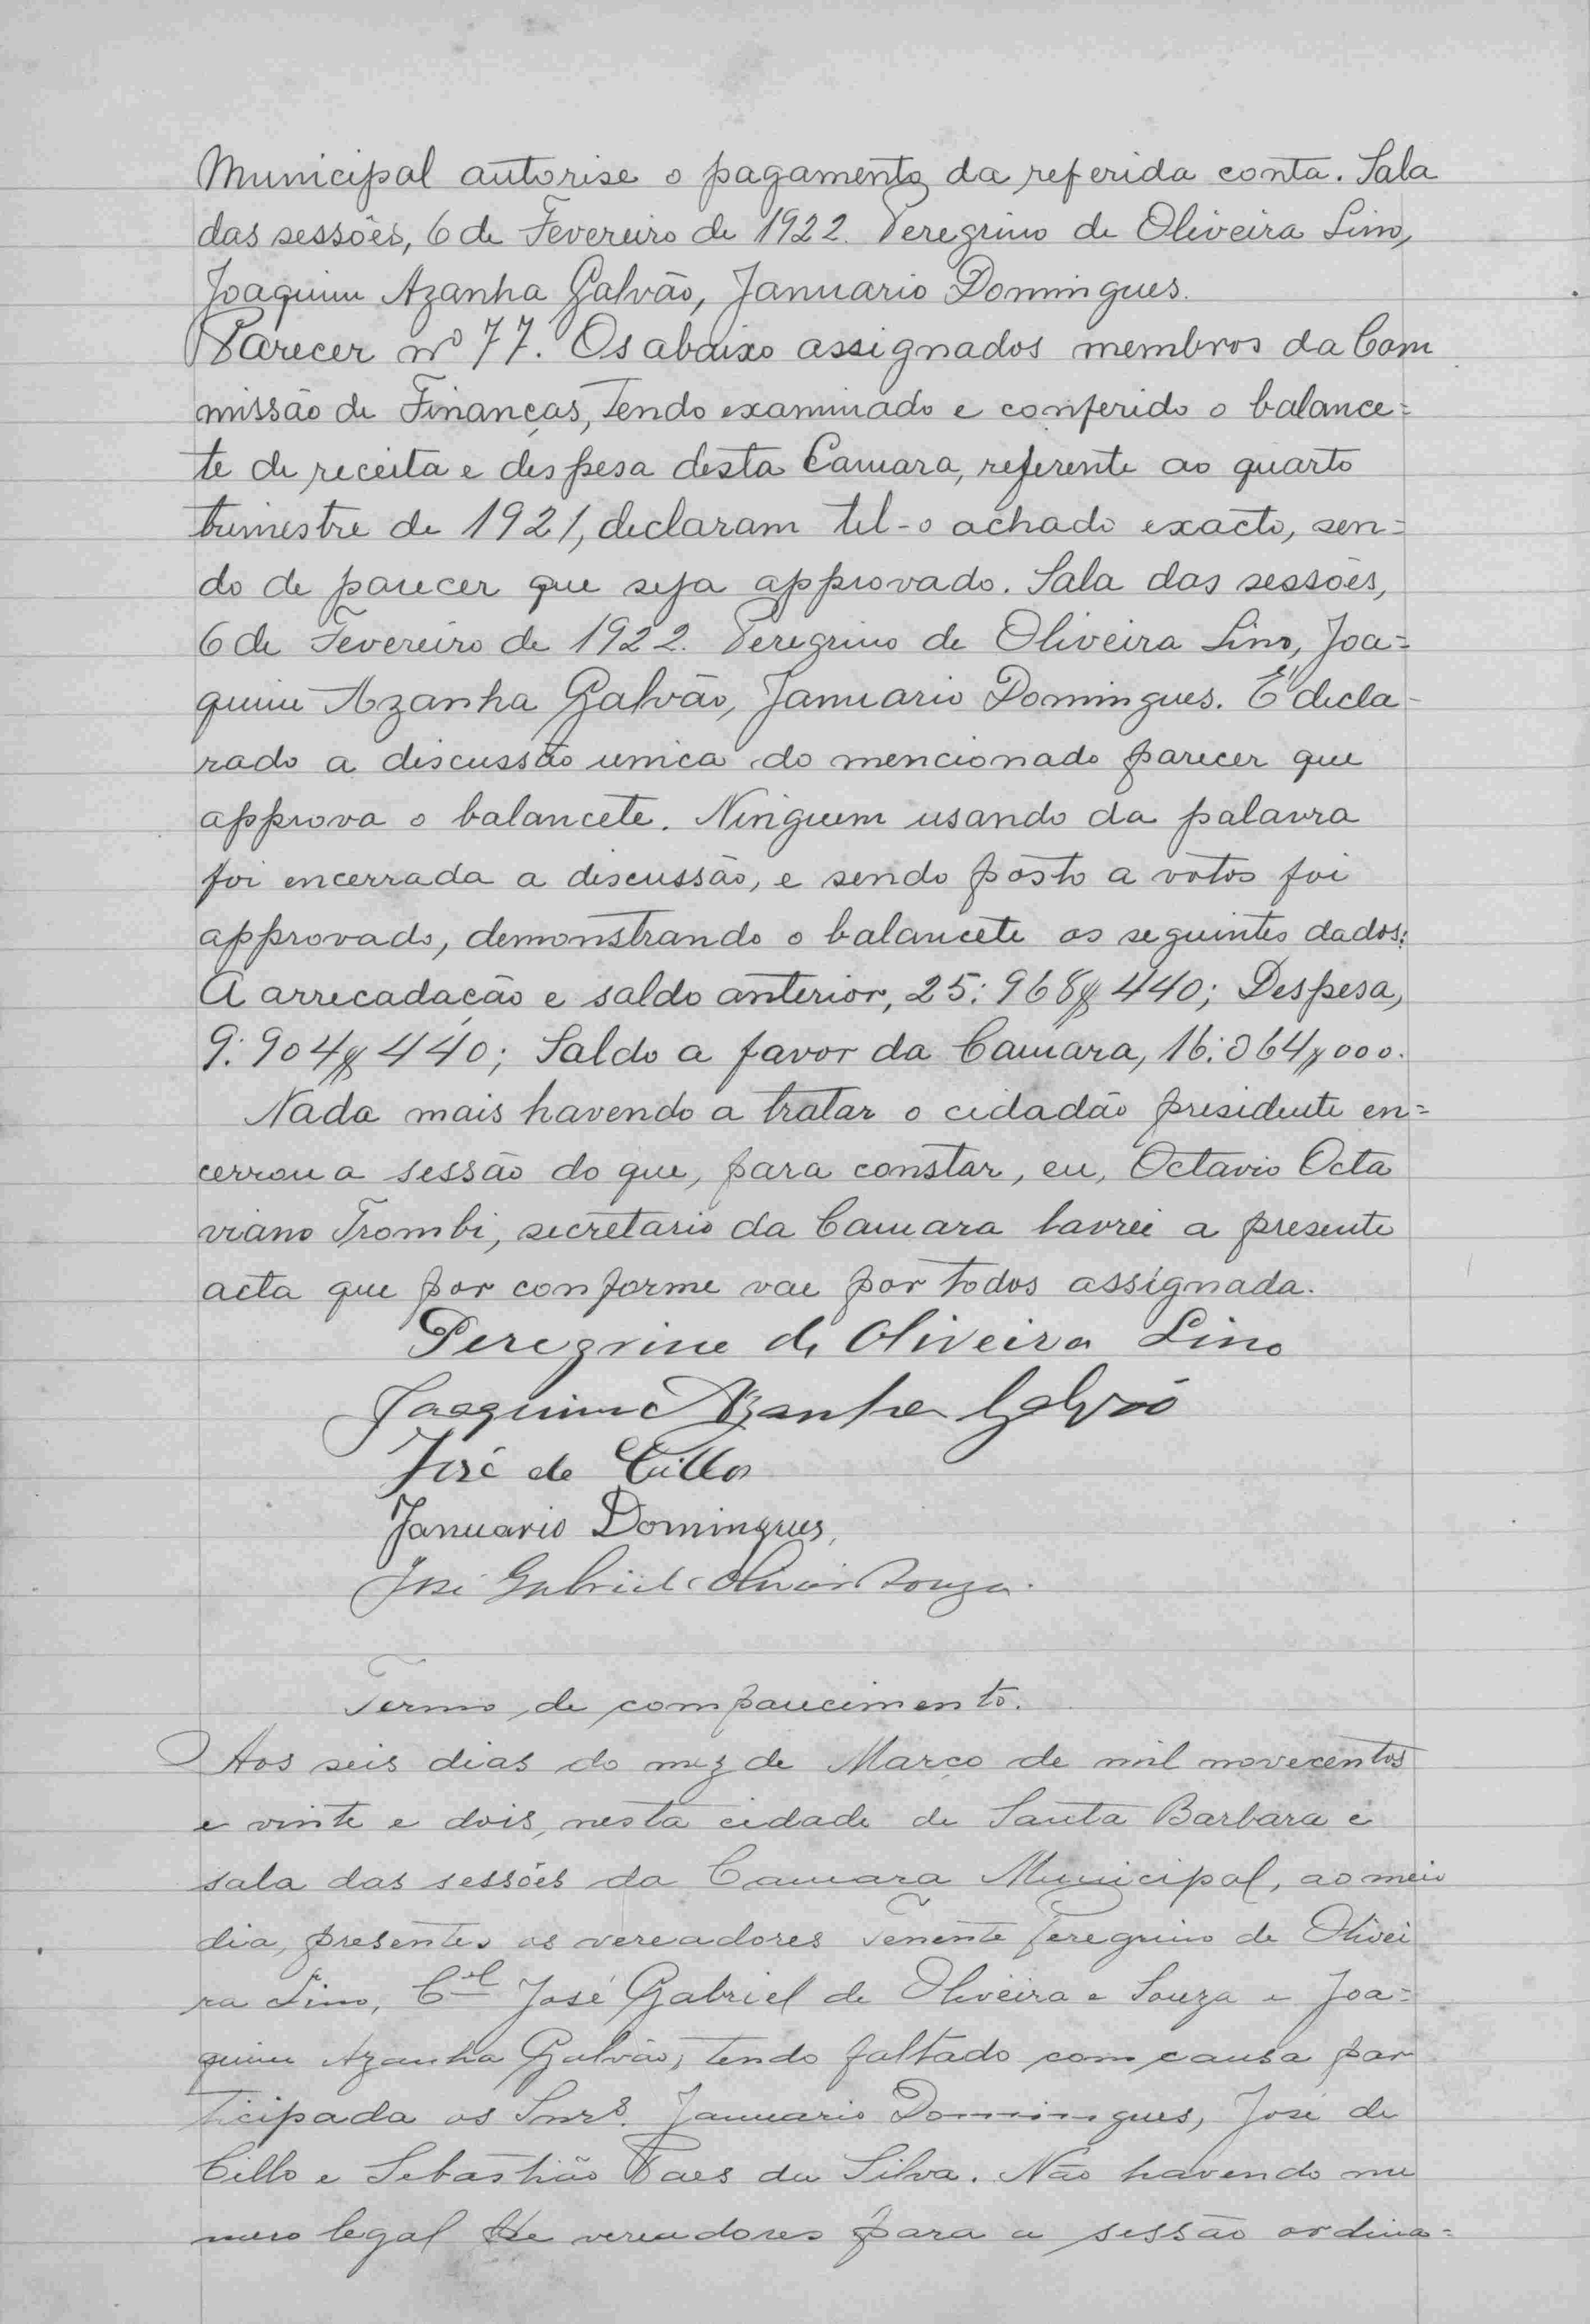 Municipal autorise o pagamento da referida conta. Sala
das sessões, 6 de Fevereiro de 1922. Peregrino de Oliveira Lino,
Joaquim Azanha Galvão, Januario Domingues.
Parecer nº 77. Os abaixo assignados membros da Com
missão de Finanças, tendo examinado e conferido o balance=
te de receita e despesa desta Camara, referente ao quarto
trimestre de 1921, declaram tel-o achado exacto, sen=
do de parecer que seja approvado. Sala das sessões,
6 de Fevereiro de 1922. Peregrino de Oliveira Lino, Joa=
quim Azanha Galvão, Januario Domingues. E' decla-
rado a discussão unica do mencionado parecer que
approva o balancete. Ninguem usando da palavra
foi encerrada a discussão, e sendo posto a votos foi
approvado, demonstrando o balancete os seguintes dados:
A arrecadação e saldo anterior, 25:968$440; Despesa,
9:904$440; Saldo a favor da Camara, 16:064$000.
Nada mais havendo a tratar o cidadão presidente en=
cerrou a sessão do que, para constar, eu, Octavio Octa
viano Trombi, secretario da Camara lavrei a presente
acta que por conforme vae por todos assignada.
Peregrino de Oliveira Lino
Joaquim Azanha Galvão
José de Cillo
Januario Domingues,
José Gabriel Oliveira Souza.
Termo de comparecimento.
Aos seis dias do mez de Março de mil novecentos
e vinte e dois, nesta cidade de Santa Barbara e
sala das sessões da Camara Municipal, ao meio
dia, presentes os vereadores Tenente Peregrino de Olivei
ra Lino, Cel José Gabriel de Oliveira e Souza e Joa=
quim Azanha Galvão, tendo faltado com causa par
ticipada os Snrs. Januario Domingues, José de
Cillo e Sebastião Paes da Silva. Não havendo nu
mero legal de vereadores para a sessão ordina=